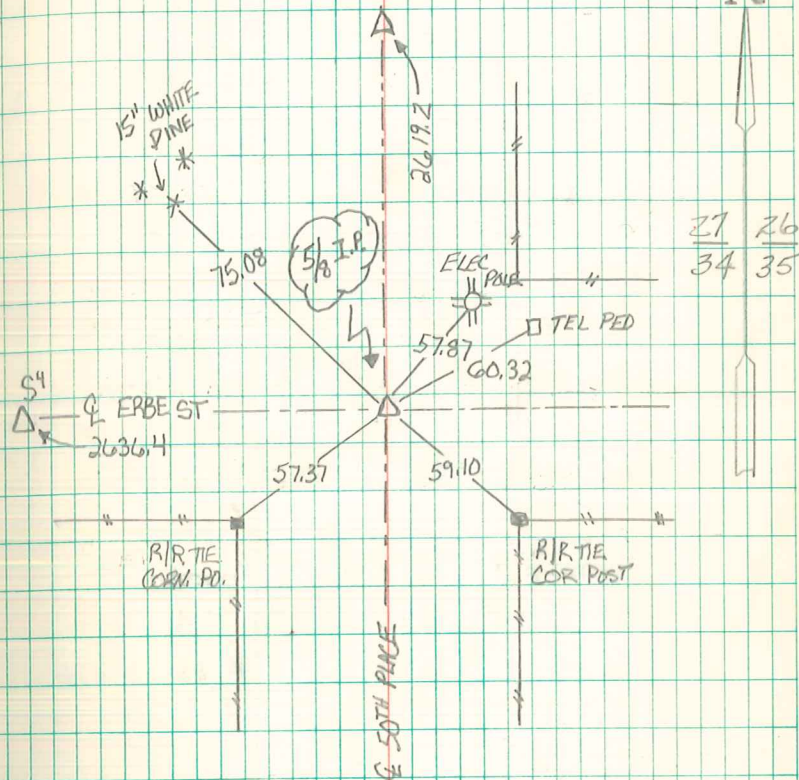 2619.2
15" WHITE
PINE
27 26
34 35
5/8 I.P.
75.08
ELEC
POLE
TEL PED
57.87
60.32
S4
℄ ERBE ST
2636.4
57.37
59.10
R/R TIE
CORN. PO.
R/R TIE
COR POST
℄ 50TH PLACE